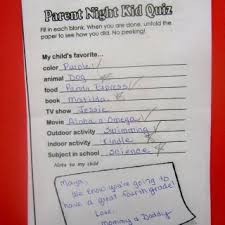 Parent Night Kid Quiz
Fill in each blank. When you are done, unfold the
paper to see how you did. No peeking!
My child's favorite...
color Purple!
animal Dog
food Panda Express
book Matilda
TV show Jessie
Movie Alpha & Omega
Outdoor activity Swimming
Indoor activity Kindle
Subject in school Science
Note to my child
We know you're going to
have a great fourth grade!
Love,
Mommy & Daddy